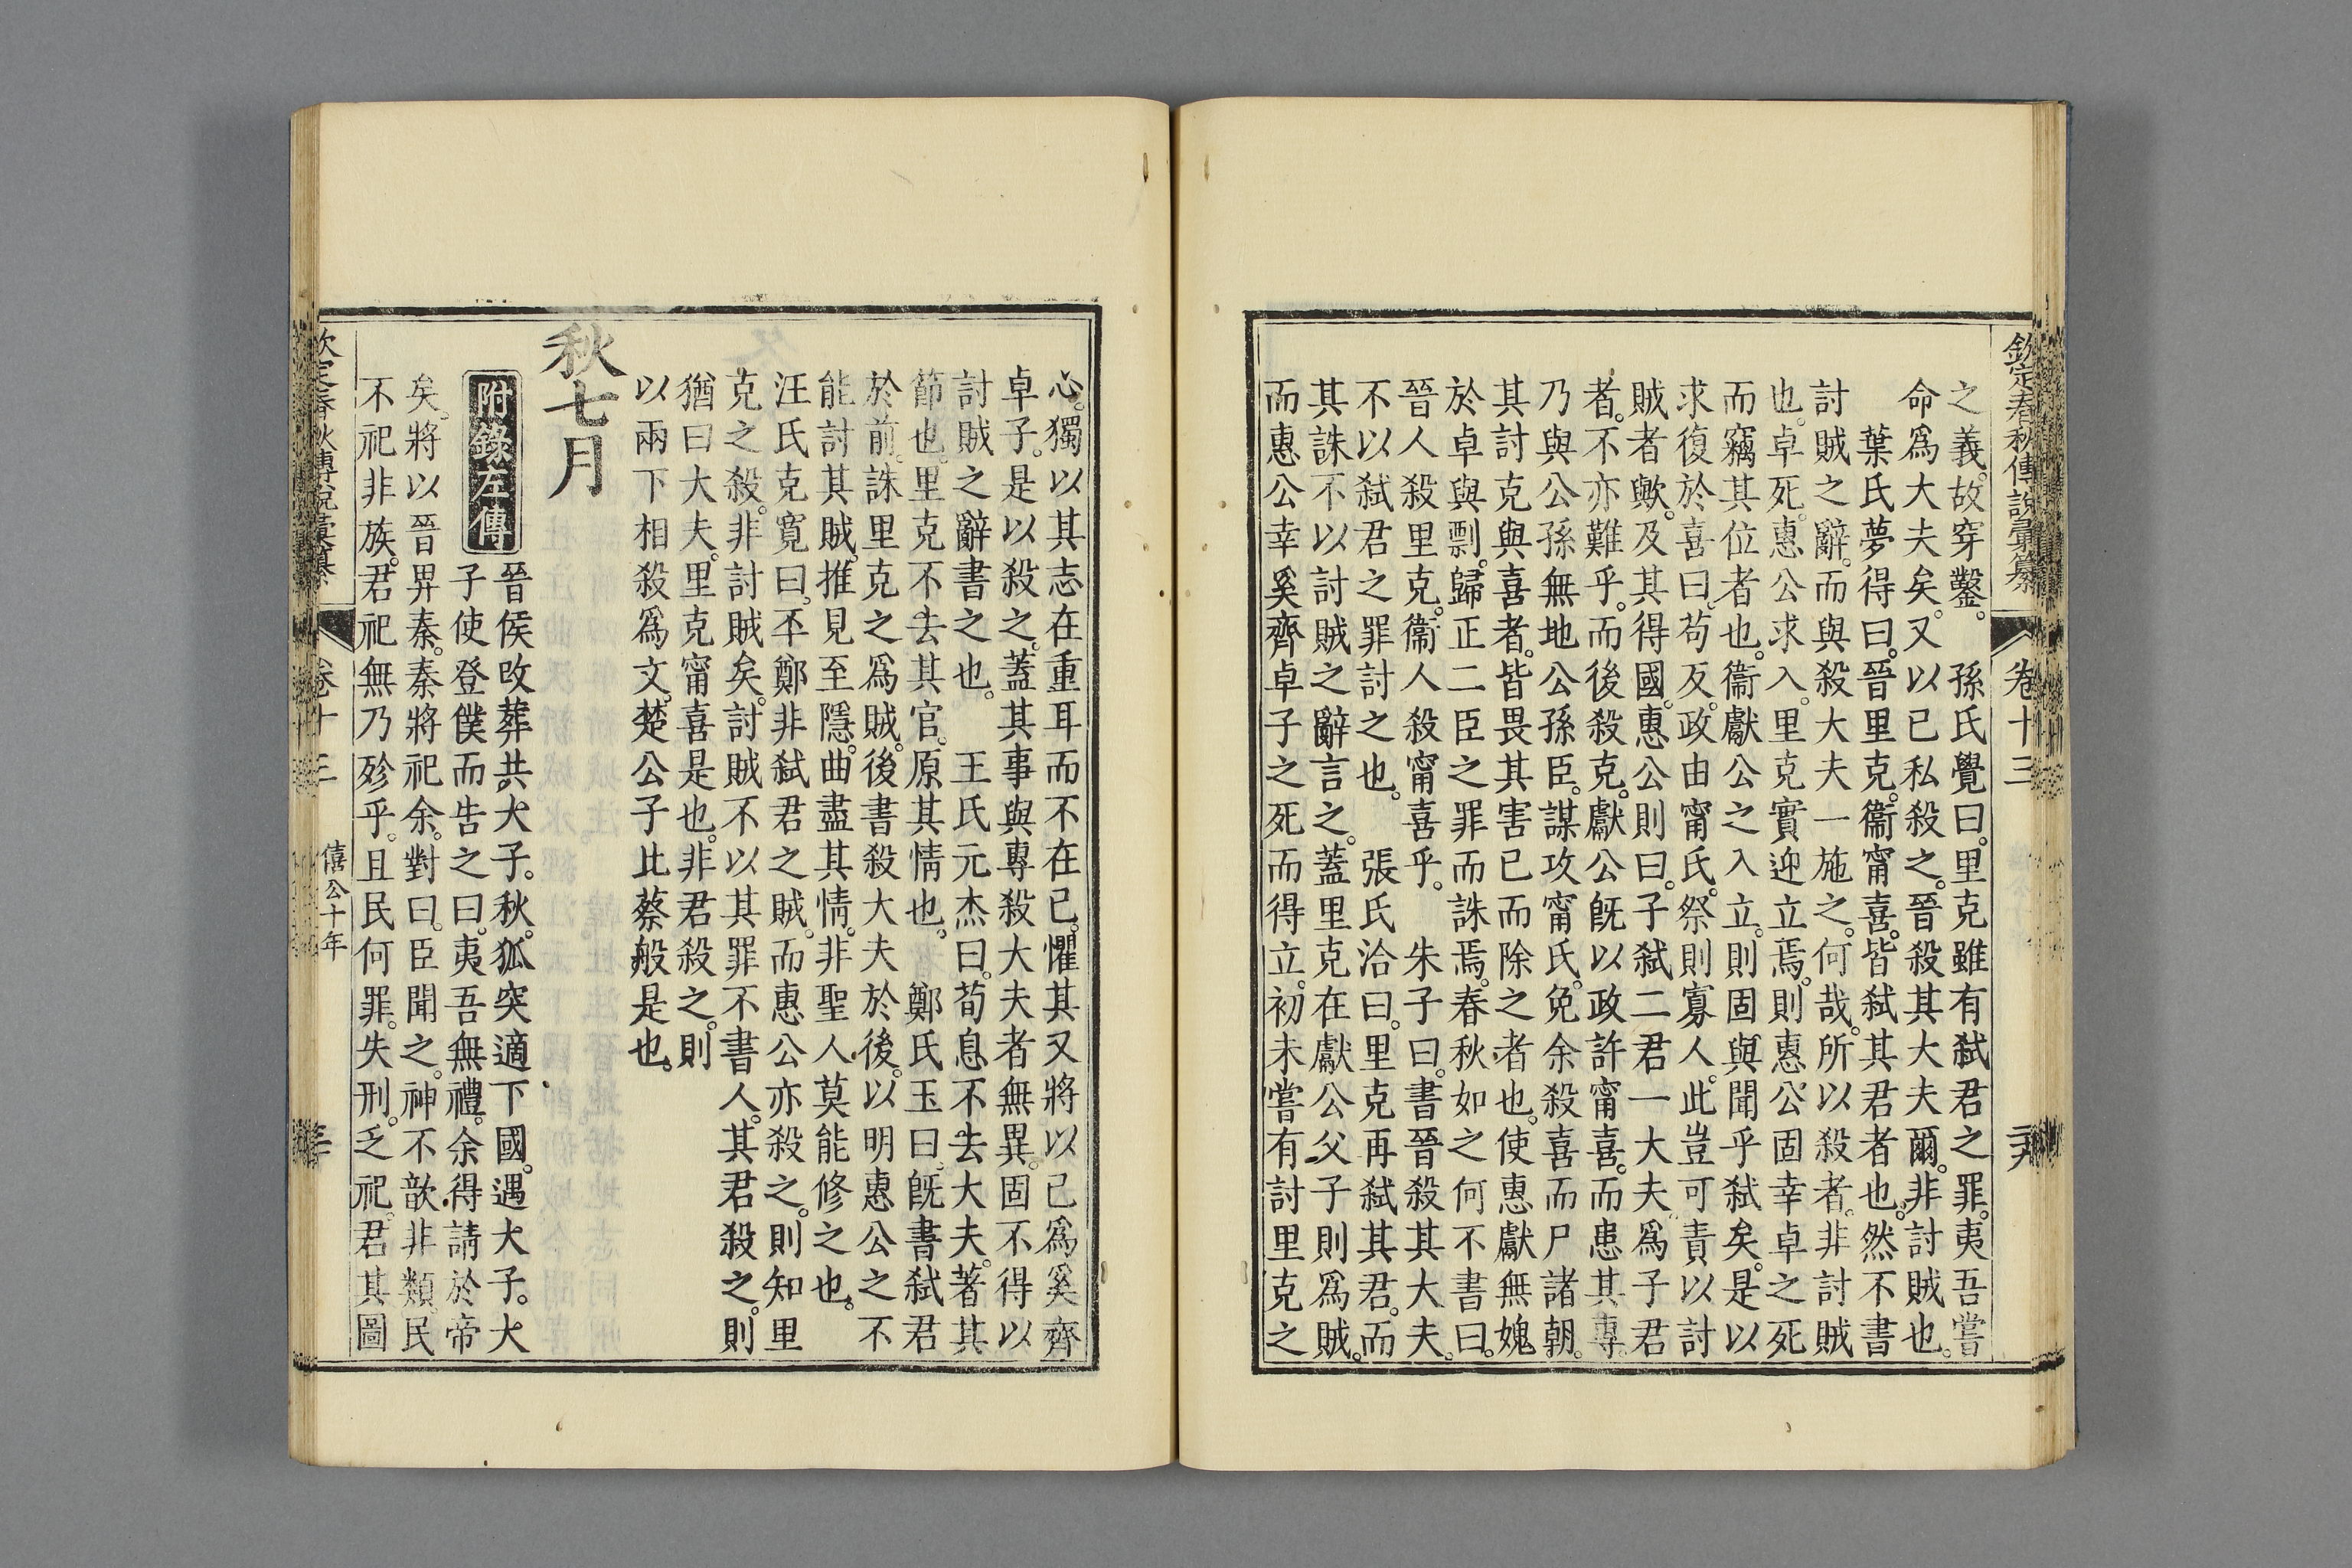 欽定春秋傳說彙纂 卷十三
之義。故穿鑿。 孫氏覺曰。里克雖有弑君之罪。夷吾嘗
命爲大夫矣。又以已私殺之。晉殺其大夫爾。非討賊也。
葉氏夢得曰。晉里克。衞甯喜。皆弑其君者也。然不書
討賊之辭。而與殺大夫一施之。何哉。所以殺者。非討賊
也。卓死。惠公求入。里克實迎立焉。則惠公固幸卓之死
而竊其位者也。衞獻公之入立。則固與聞乎弑矣。是以
求復於喜曰。苟反。政由甯氏。祭則寡人。此豈可責以討
賊者歟。及其得國。惠公則曰。子弑二君一大夫。爲子君
者。不亦難乎。而後殺克。獻公旣以政許甯喜。而患其專。
乃與公孫無地公孫臣。謀攻甯氏。免余殺喜而尸諸朝。
其討克與喜者。皆畏其害已而除之者也。使惠獻無媿
於卓與剽。歸正二臣之罪而誅焉。春秋如之何不書曰。
晉人殺里克。衞人殺甯喜乎。 朱子曰。書晉殺其大夫。
不以弑君之罪討之也。 張氏洽曰。里克再弑其君。而
其誅不以討賊之辭言之。蓋里克在獻公父子則爲賊。
而惠公幸奚齊卓子之死而得立。初未嘗有討里克之
心。獨以其志在重耳而不在已。懼其又將以已爲奚齊
卓子。是以殺之。蓋其事與專殺大夫者無異。固不得以
討賊之辭書之也。 王氏元杰曰。荀息不去大夫。著其
節也。里克不去其官。原其情也。 鄭氏玉曰。旣書弑君
於前。誅里克之爲賊。後書殺大夫於後。以明惠公之不
能討其賊。推見至隱。曲盡其情。非聖人莫能修之也。
汪氏克寬曰。丕鄭非弑君之賊。而惠公亦殺之。則知里
克之殺。非討賊矣。討賊不以其罪不書人。其君殺之。則
猶曰大夫。里克甯喜是也。非君殺之。則
以兩下相殺爲文。楚公子比蔡般是也。
秋七月
附錄左傳
晉侯改葬共大子。秋。狐突適下國。遇大子。大
子使登僕而告之曰。夷吾無禮。余得請於帝
矣。將以晉畀秦。秦將祀余。對曰。臣聞之。神不歆非類。民
不祀非族。君祀無乃殄乎。且民何罪。失刑。乏祀。君其圖
卷十三 僖公十年